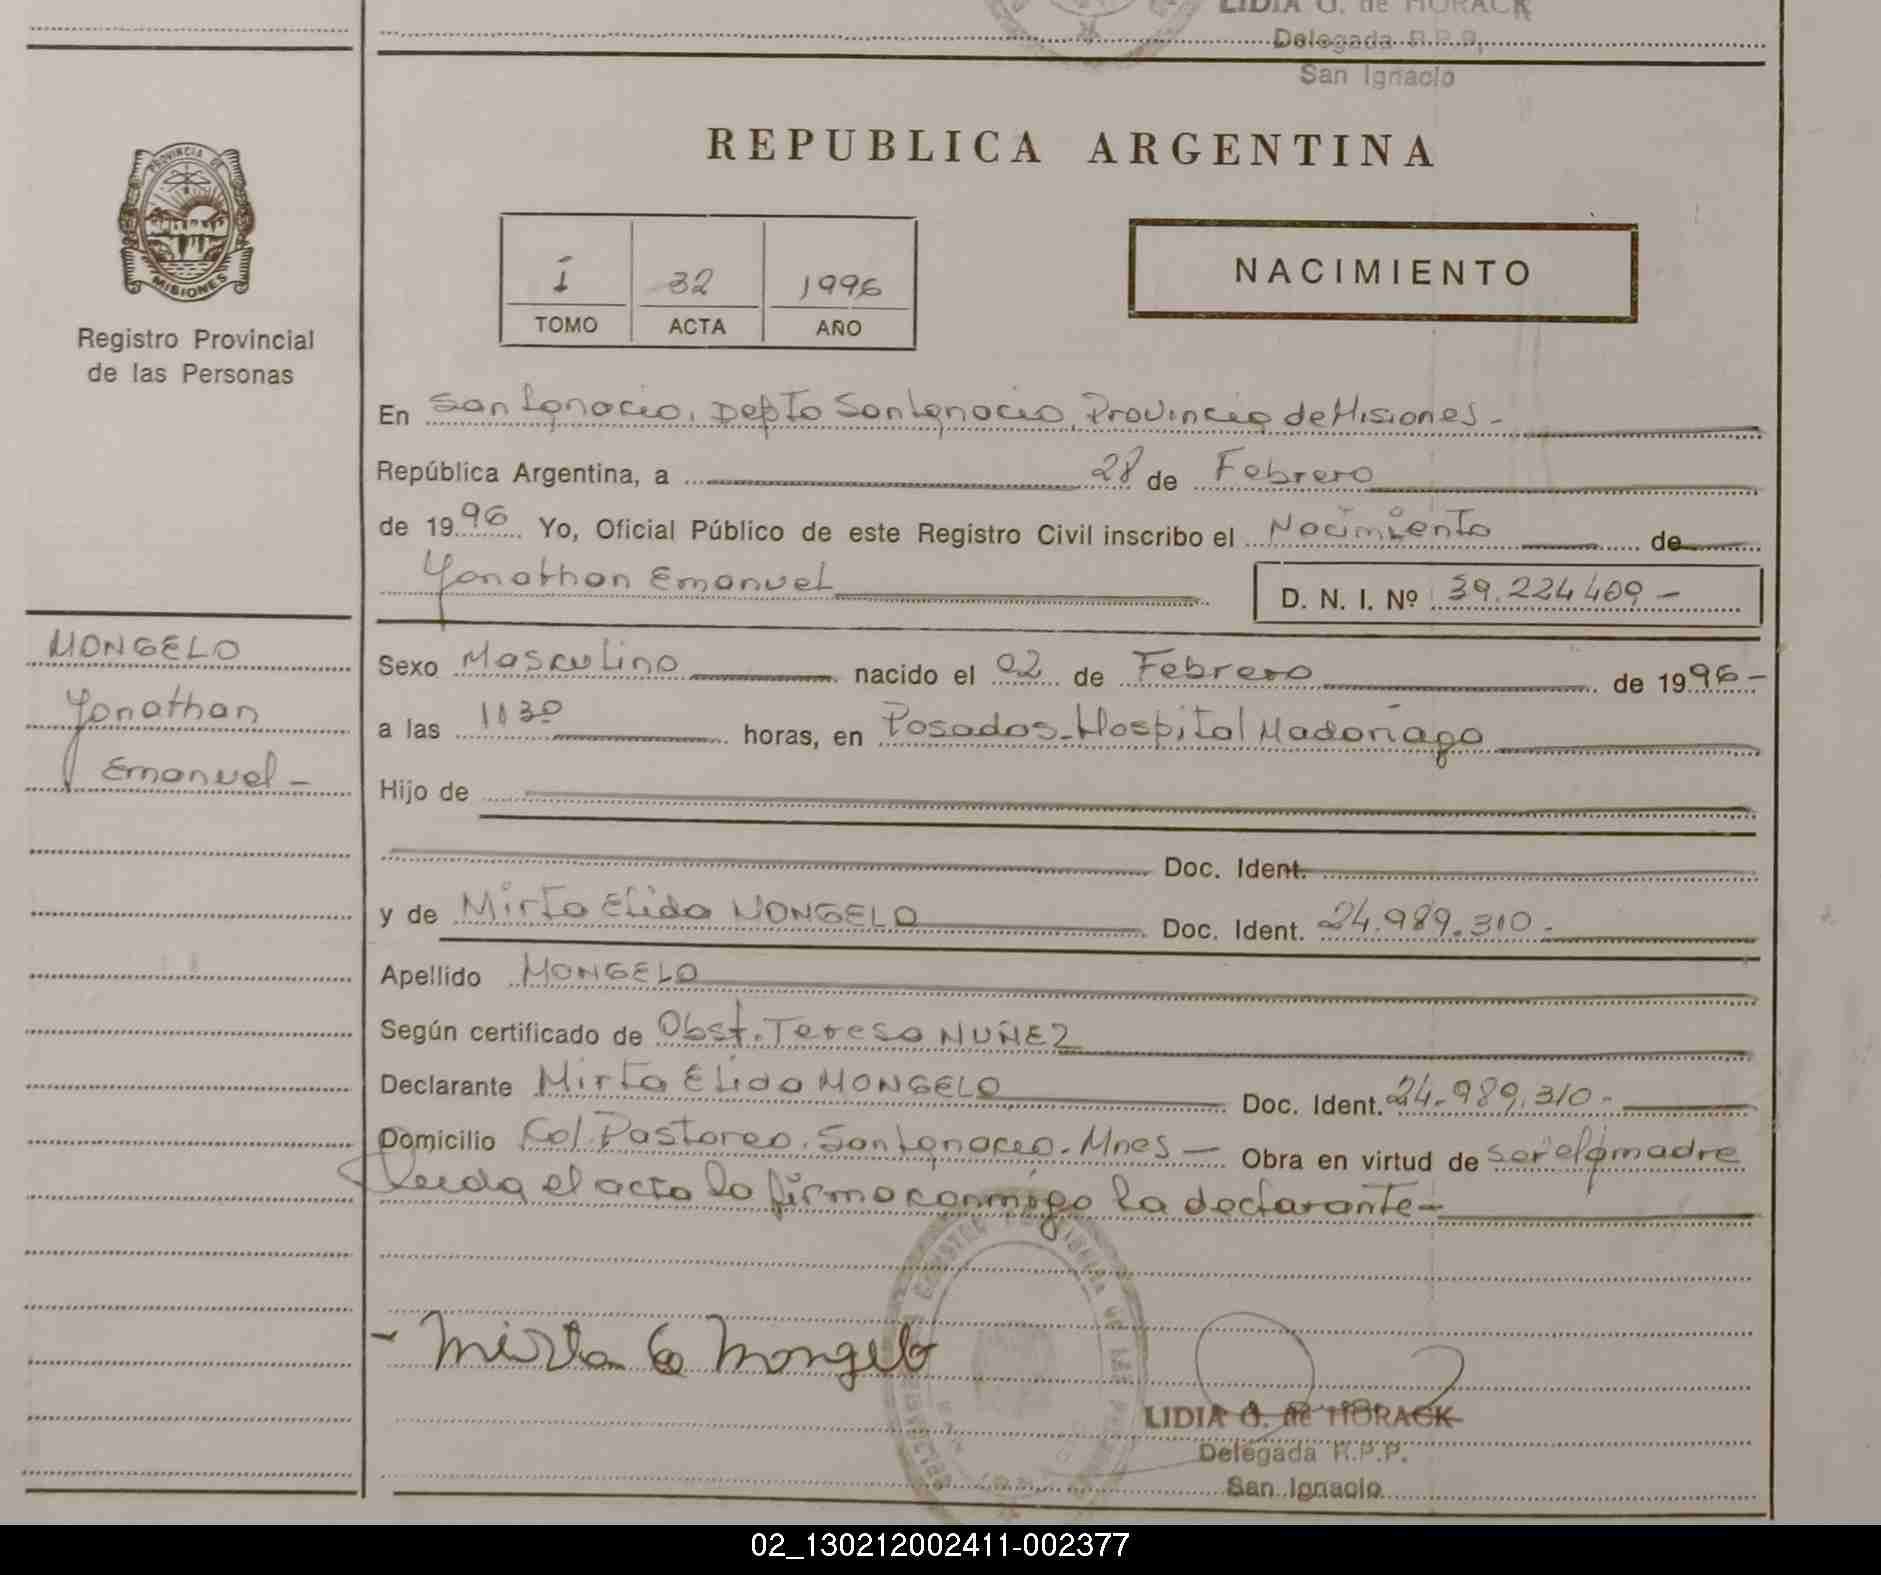 LIDIA O. de HORACK
Delegada R.P.P.
San Ignacio
PROVINCIA DE
MISIONES
Registro Provincial
de las Personas
REPUBLICA ARGENTINA
I 32 1996
TOMO ACTA AÑO
NACIMIENTO
En San Ignacio, Depto San Ignacio, Provincia de Misiones -
República Argentina, a 28 de Febrero
de 1996 Yo, Oficial Público de este Registro Civil inscribo el Nacimiento de
Yonathan Emanuel D. N. I. Nº 39.224409 -
MONGELO
Yonathan
Emanuel -
Sexo Masculino nacido el 02 de Febrero de 1996 -
a las 1130 horas, en Posadas - Hospital Madariaga
Hijo de
Doc. Ident.
y de Mirta Elida MONGELO Doc. Ident. 24.989.310 -
Apellido MONGELO
Según certificado de Obst. Teresa NUÑEZ
Declarante Mirta Elida MONGELO Doc. Ident. 24.989.310 -
Domicilio Col. Pastoreo. San Ignacio. Mnes - Obra en virtud de ser el madre
Leida el acta la firma conmigo la declarante -
- Mirta E Mongelo
LIDIA O. de HORACK
Delegada R.P.P.
San Ignacio
02_130212002411-002377